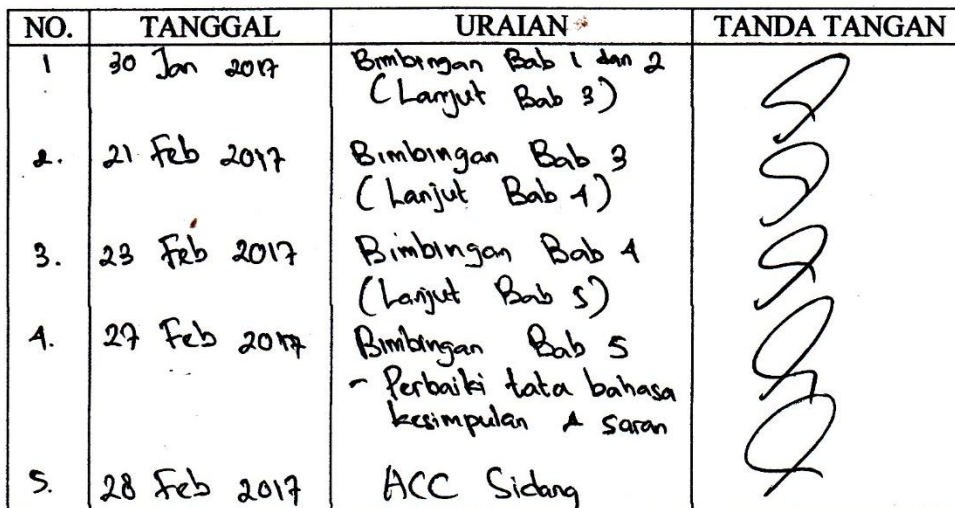 NO. TANGGAL URAIAN TANDA TANGAN
1 30 Jan 2017 Bimbingan Bab 1 dan 2
(Lanjut Bab 3)
2. 21 Feb 2017 Bimbingan Bab 3
(Lanjut Bab 4)
3. 23 Feb 2017 Bimbingan Bab 4
(Lanjut Bab 5)
4. 27 Feb 2017 Bimbingan Bab 5
- Perbaiki tata bahasa
kesimpulan & saran
5. 28 Feb 2017 ACC Sidang